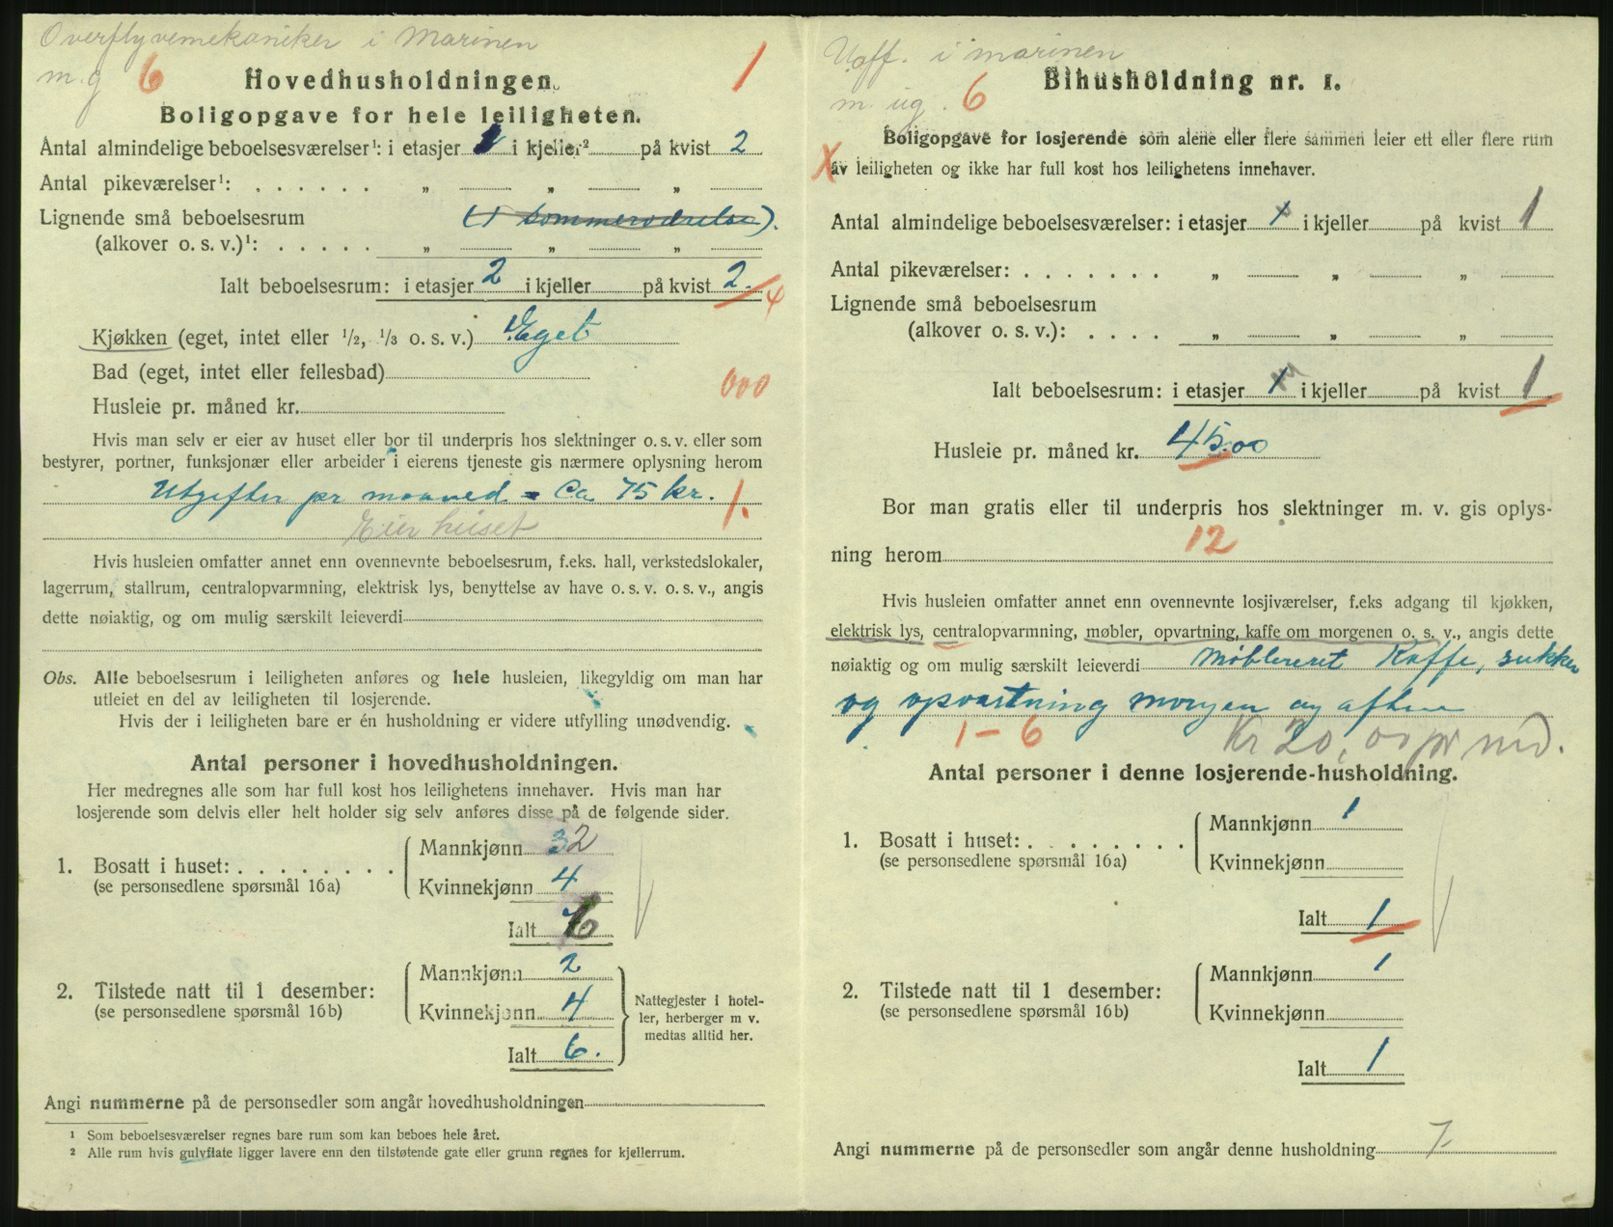 Overflyvemekaniker i Marinen
m.g 6 1
Hovedhusholdningen.
Boligopgave for hele leiligheten.
Antal almindelige beboelsesværelser¹: i etasjer i kjeller² på kvist 2
Antal pikeværelser¹: . . . . . . „ „ „
Lignende små beboelsesrum (1 sommerværelse).
(alkover o. s. v.)¹: . . . . . „ „ „
Ialt beboelsesrum: i etasjer 2 i kjeller på kvist 2. 4
Kjøkken (eget, intet eller 1/2, 1/3 o. s. v.) Eget
Bad (eget, intet eller fellesbad) 000
Husleie pr. måned kr.
Hvis man selv er eier av huset eller bor til underpris hos slektninger o. s. v. eller som
bestyrer, portner, funksjonær eller arbeider i eierens tjeneste gis nærmere oplysning herom
Utgifter pr maaned = Ca 75 kr. 1.
Eier huset
Hvis husleien omfatter annet enn ovennevnte beboelsesrum, f.eks. hall, verkstedslokaler,
lagerrum, stallrum, centralopvarmning, elektrisk lys, benyttelse av have o. s. v. o. s. v., angis
dette nøiaktig, og om mulig særskilt leieverdi
Obs. Alle beboelsesrum i leiligheten anføres og hele husleien, likegyldig om man har
utleiet en del av leiligheten til losjerende.
Hvis der i leiligheten bare er én husholdning er videre utfylling unødvendig.
Antal personer i hovedhusholdningen.
Her medregnes alle som har full kost hos leilighetens innehaver. Hvis man har
losjerende som delvis eller helt holder sig selv anføres disse på de følgende sider.
1. Bosatt i huset: . . . . . . . .
(se personsedlene spørsmål 16a)
Mannkjønn 32
Kvinnekjønn 4
Ialt 6
2. Tilstede natt til 1 desember:
(se personsedlene spørsmål 16b)
Mannkjønn 2
Kvinnekjønn 4
Ialt 6.
Nattegjester i hotel-
ler, herberger m v.
medtas alltid her.
Angi nummerne på de personsedler som angår hovedhusholdningen
¹ Som beboelsesværelser regnes bare rum som kan beboes hele året.
² Alle rum hvis gulvflate ligger lavere enn den tilstøtende gate eller grunn regnes for kjellerrum.
Uoff. i marinen
m. ug. 6
Bihusholdning nr. 1.
Boligopgave for losjerende som alene eller flere sammen leier ett eller flere rum
X av leiligheten og ikke har full kost hos leilighetens innehaver.
Antal almindelige beboelsesværelser: i etasjer 1 i kjeller på kvist 1
Antal pikeværelser: . . . . . . . „ „ „
Lignende små beboelsesrum
(alkover o. s. v.): . . . . „ „ „
Ialt beboelsesrum: i etasjer 1 i kjeller på kvist 1
Husleie pr. måned kr. 45.00
Bor man gratis eller til underpris hos slektninger m. v. gis oplys-
ning herom 12
Hvis husleien omfatter annet enn ovennevnte losjiværelser, f.eks adgang til kjøkken,
elektrisk lys, centralopvarmning, møbler, opvartning, kaffe om morgenen o. s. v., angis dette
nøiaktig og om mulig særskilt leieverdi Møbleret Kaffe, sukker
og opvartning morgen og aften
1-6 Kr 20,00 pr md.
Antal personer i denne losjerende-husholdning.
1. Bosatt i huset: . . . . . . . .
(se personsedlene spørsmål 16a)
Mannkjønn 1
Kvinnekjønn
Ialt 1
2. Tilstede natt til 1 desember:
(se personsedlene spørsmål 16b)
Mannkjønn 1
Kvinnekjønn
Ialt 1
Angi nummerne på de personsedler som angår denne husholdning 7-